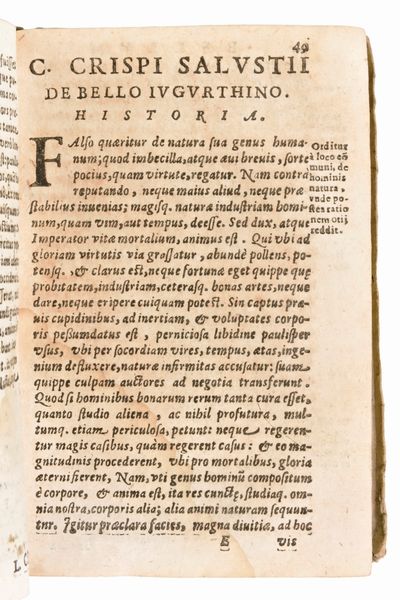 49
C. CRISPI SALVSTII
DE BELLO IVGVRTHINO.
HISTORIA.
FAlso quæritur de natura sua genus huma-
num; quod imbecilla, atque æui breuis, forte
potius, quam virtute, regatur. Nam contra
reputando, neque maius aliud, neque præ
stabilius inuenias; magisq. naturæ industriam homi
num, quam vim, aut tempus, deesse. Sed dux, atque
Imperator vitæ mortalium, animus est. Qui vbi ad
gloriam virtutis via grassatur, abundè pollens, po-
tensq. & clarus est, neque fortunæ eget quippe quę
probitatem, industriam, ceterasq. bonas artes, neque
dare, neque eripere cuiquam potest. Sin captus præ-
uis cupidinibus, ad inertiam, & voluptates corpo-
ris pessumdatus est, perniciosa libidine paulisper
vsus, vbi per socordiam vires, tempus, ætas, inge-
nium defluxere, naturæ infirmitas accusatur: suam
quippe culpam auctores ad negotia transferunt.
Quod si hominibus bonarum rerum tanta cura esset,
quanto studio aliena, ac nihil profutura, mul-
tumq. etiam periculosa, petunt: neque regeren-
tur magis casibus, quàm regerent casus: & eo ma-
gnitudinis procederent, vbi pro mortalibus, gloria
æterni fierent, Nam, vti genus hominũ compositum
è corpore, & anima est, ita res cunctę, studiaq. om-
nia nostra, corporis alia; alia animi naturam sequun-
tur. Igitur præclara facies, magna diuitiæ, ad hoc
E vis
Orditur
à loco cõ
muni, de
hominis
natura,
vnde po-
stea ratio
nem otij
reddit.